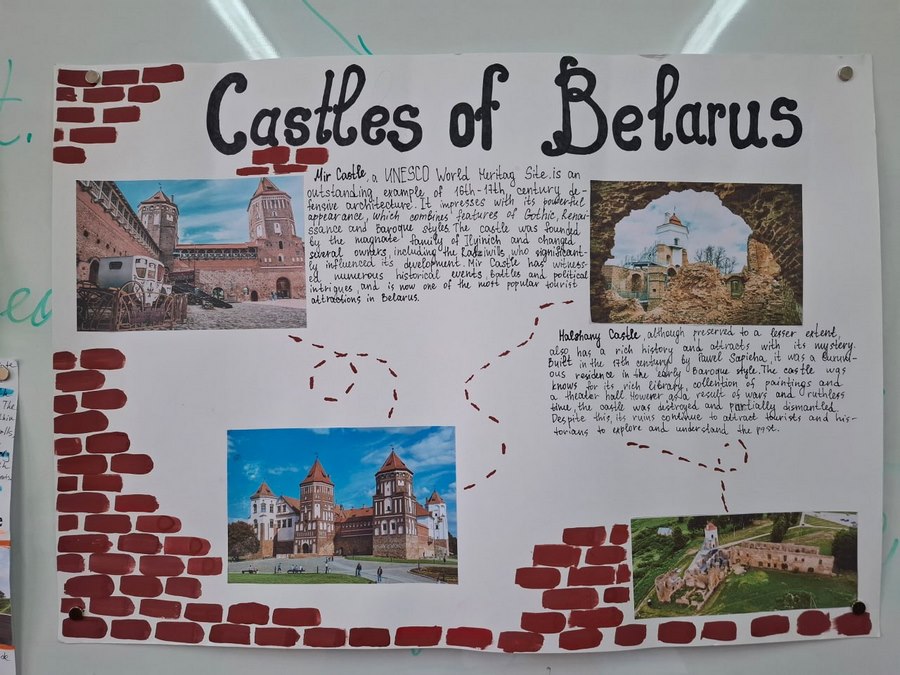 Castles of Belarus
Mir Castle, a UNESCO World Heritag Site. is an
outstanding example of 16th-17th century de-
fensive architecture. It impresses with its powerful
appearance, which combines features of Gothic, Renai-
ssance and Baroque styles. The castle was founded
by the magnate family of Ilyinich and changed
several owners, including the Radziwills, who significant-
ly influenced its development. Mir Castle has witness-
ed numerous historical events, battles and political
intrigues, and is now one of the most popular tourist
attractions in Belarus.
Halshany Castle, although preserved to a lesser extent,
also has a rich history and attracts with its mystery.
Built in the 17th century by Pavel Sapieha, it was a luxuri-
ous residence in the early Baroque style. The castle was
known for its rich library, collection of paintings and
a theater hall. However as a result of wars and ruthless
time, the castle was distroyed and partially dismantled.
Despite this, its ruins continue to attract tourists and his-
torians to explore and understand the past.
t.
The